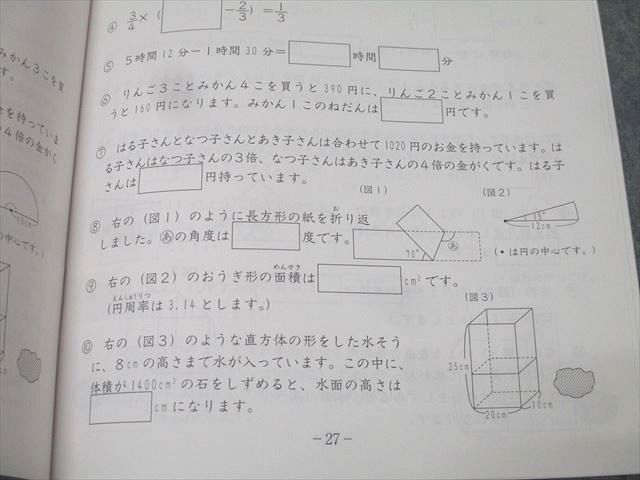 ④ 3/4×( -2/3)=1/3
⑤ 5時間12分-1時間30分= 時間 分
⑥ りんご3ことみかん4こを買うと390円に、りんご2ことみかん1こを買
うと160円になります。みかん1このねだんは 円です。
⑦ はる子さんとなつ子さんとあき子さんは合わせて1020円のお金を持っています。は
る子さんはなつ子さんの3倍、なつ子さんはあき子さんの4倍の金がくです。はる子
さんは 円持っています。
(図1)
(図2)
⑧ 右の(図1)のように長方形の紙を折り返
お
しました。あの角度は 度です。
70°
あ
15°
12cm
(・は円の中心です。)
⑨ 右の(図2)のおうぎ形の面積は cm²です。
めんせき
(円周率は3.14とします。)
えんしゅうりつ
(図3)
⑩ 右の(図3)のような直方体の形をした水そう
に、8cmの高さまで水が入っています。この中に、
体積が1400cm³の石をしずめると、水面の高さは
cmになります。
25cm
20cm
10cm
-27-
みかん3こを買
す。
を持っていま
4倍の金がく
12cm
の中心です。)